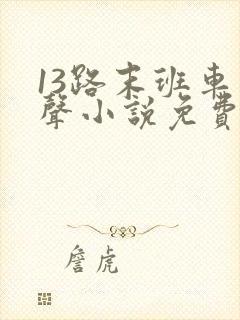 13路末班車
聲小說免費
詹虎